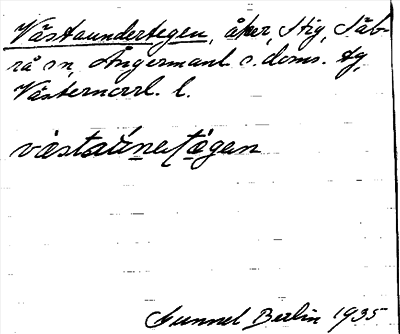 Västaundertegen, åker, Stig, Säb-
rå sn, Ångermanl. s. doms. tg,
Västernorrl. l.
västaúnetǫ́gan
Gunnel Berlin 1935